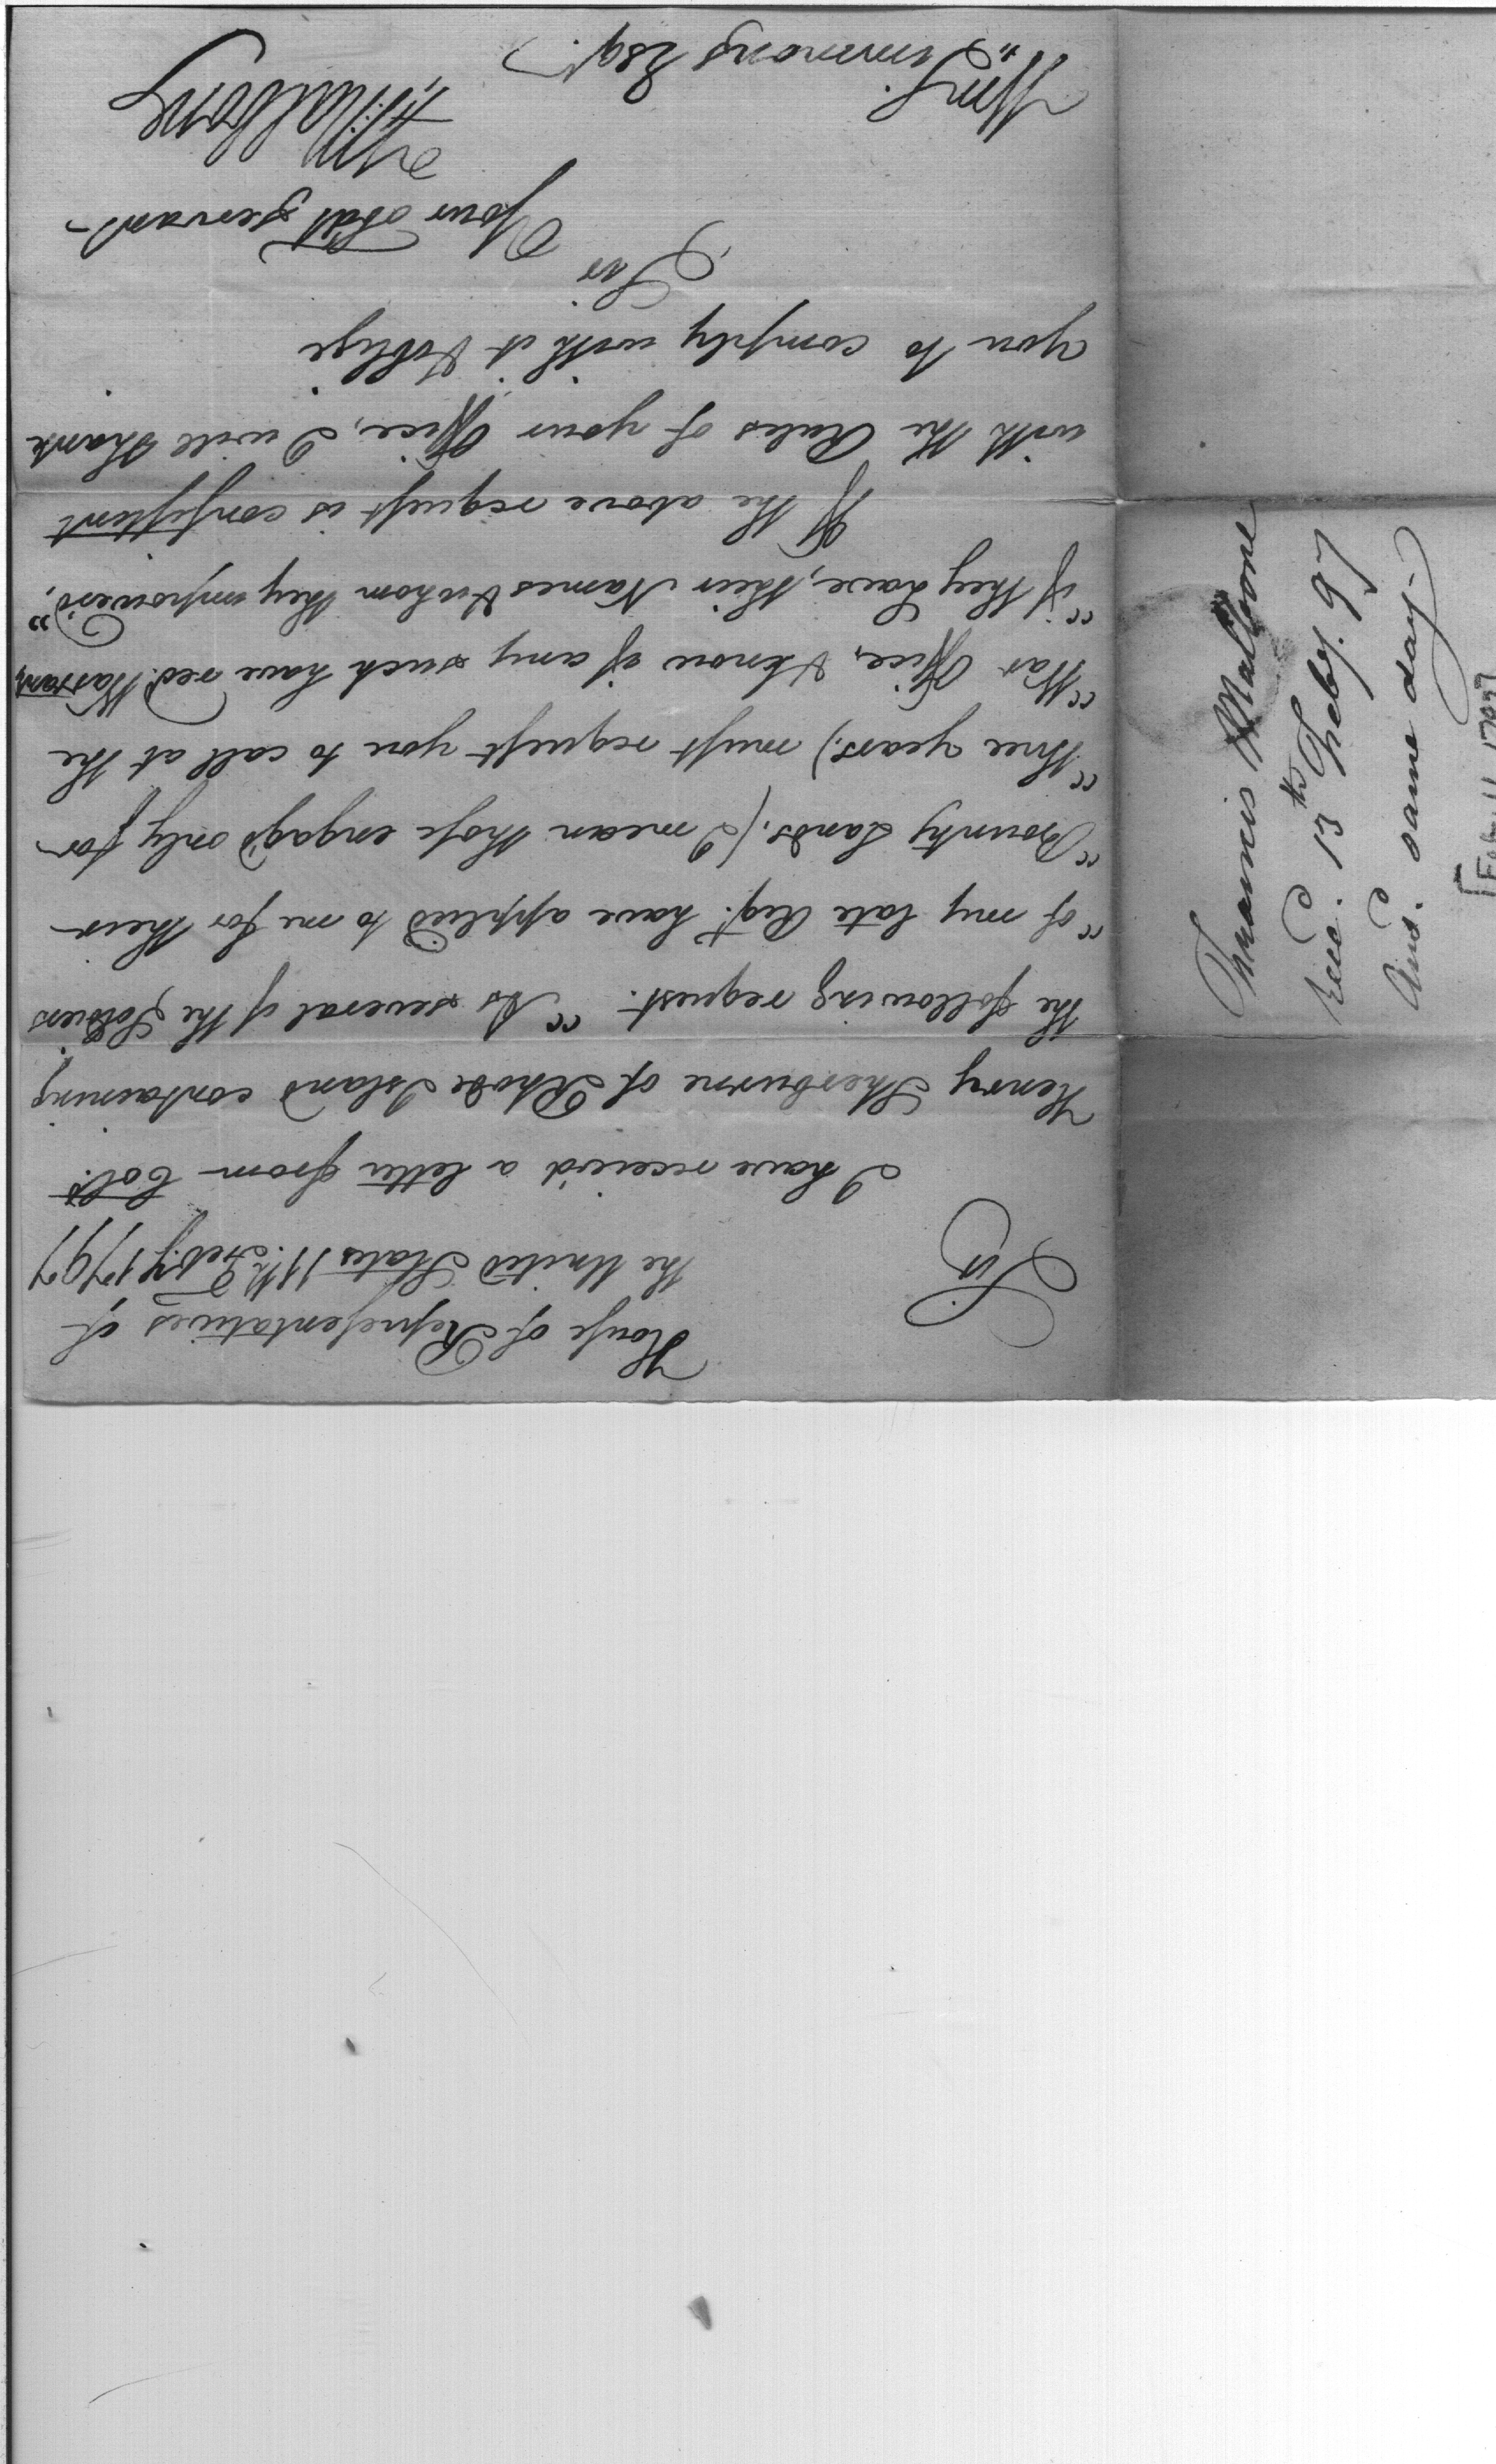 House of Representatives of
the United States 11th. Feby 1797
Sir,
I have receiv'd a letter from Colo.
Henry Sherburne of Rhode Island containing
the following request. "As several of the Soldiers
"of my late Regt. have applied to me for their
"Bounty Lands, (I mean those engag'd only for
"three years.) must request you to call at the
"War Office, & know if any such have recd. Warrants,
"if they have, their Names & whom they impower'd,"
If the above request is consistent
with the Rules of your Office, I will thank
you to comply with it & oblige
Sir
Your obdt. servant
F. Malbone
Wm. Simmons Esqr.
Francis Malbone
Recd. 13th. Feby. 97
Ansd. same day.
[Feb. 11, 1797]